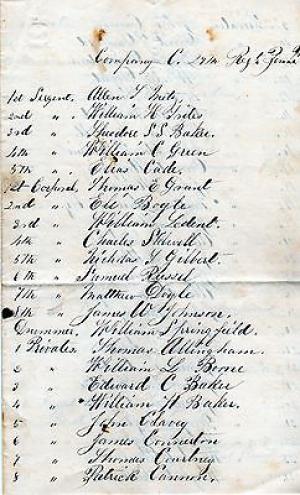 Company C. 28th Regt Penna
1st Sergent, Allen
2nd " , William H Fites
3rd " , Theodore S. S. Baker.
4th " William C Green
5th " , Elias Cade.
1st Corporal, Thomas E Grant
2nd " Eli Bogle
3rd " William
4th " Charles
5th " Nicholas Y Gilbert
6th " Samuel Russel
7th " Matthew Doyle
8th " James W Johnson.
Drummer, William Springfield.
1 Privates, Thomas Allingham.
2 " William L Bome
3 " Edward C Baker
4 " William H Baker.
5 " John Clavey
6 " James Connerton
7 " Thomas Courtney
8 " Patrick Cannon.